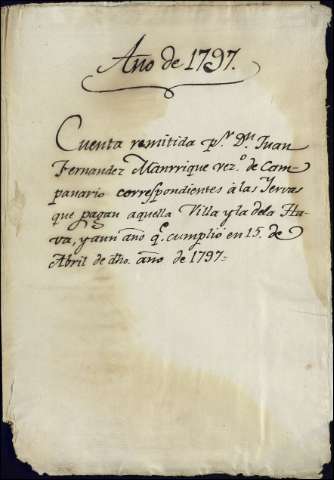 Año de 1797.
Cuenta remitida p.r D.n Juan
Fernandez Manrrique vez.o de Cam-
panario correspondientes à las Yervas
que pagan aquella Villa y la de la Ha-
va, y aun año q.e cumplio en 15. de
Abril de dho. año de 1797=